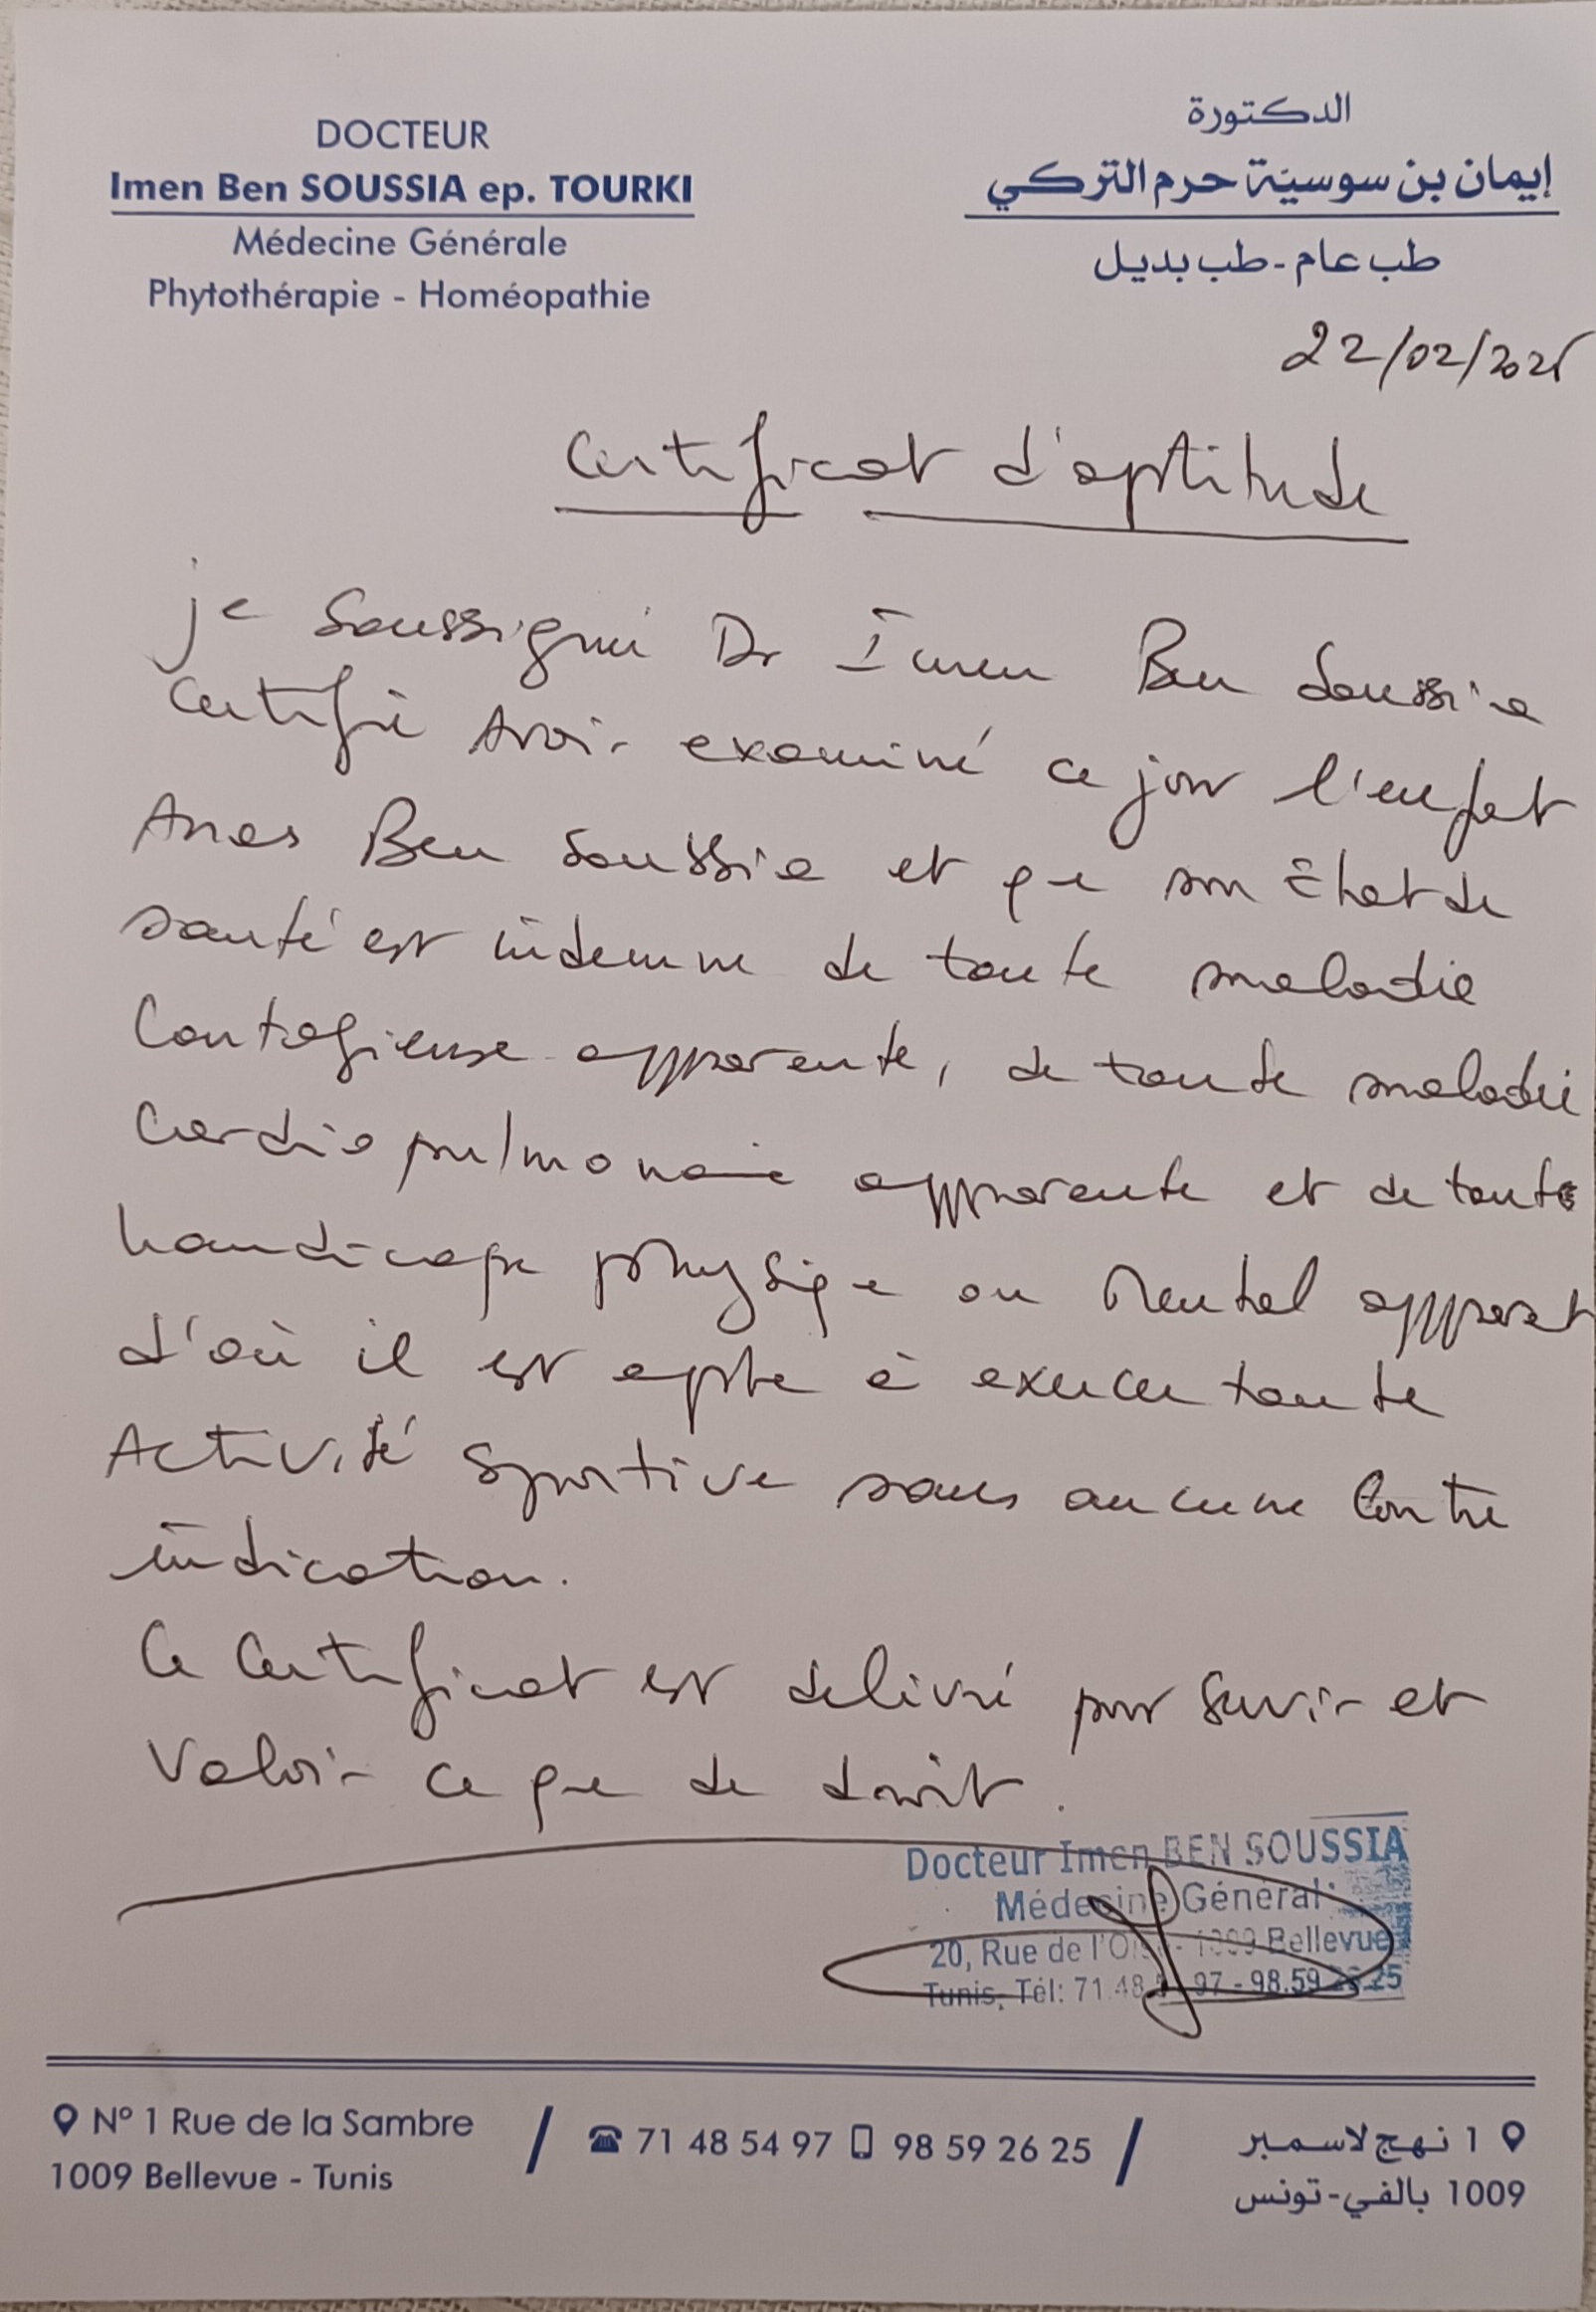 DOCTEUR
Imen Ben SOUSSIA ep. TOURKI
Médecine Générale
Phytothérapie - Homéopathie
الدكتورة
إيمان بن سوسية حرم التركي
طب عام - طب بديل
22/02/202
Certificat d'aptitude
je soussigné Dr Imen Ben Soussia
certifie Avoir examiné ce jour l'enfat
Anas Ben Soussia et que son état de
santé est indemne de toute maladie
Contagieuse apparente, de toute maladie
Cardio pulmonaire apparente et de toute
handicape physique ou Mental apparat
d'où il est apte à exercer toute
Activité sportive sans aucune Contre
indication.
Ce Certificat est delivré pour servir et
Valoir ce que de droit.
Docteur Imen BEN SOUSSIA
Médecine Général
20, Rue de l'Oise - 1009 Bellevue
Tunis, Tél: 71 48 97 - 98.59 26 25
N° 1 Rue de la Sambre
1009 Bellevue - Tunis
/ 71 48 54 97 98 59 26 25 /
1 نهج لاسمبر
1009 بالفي - تونس